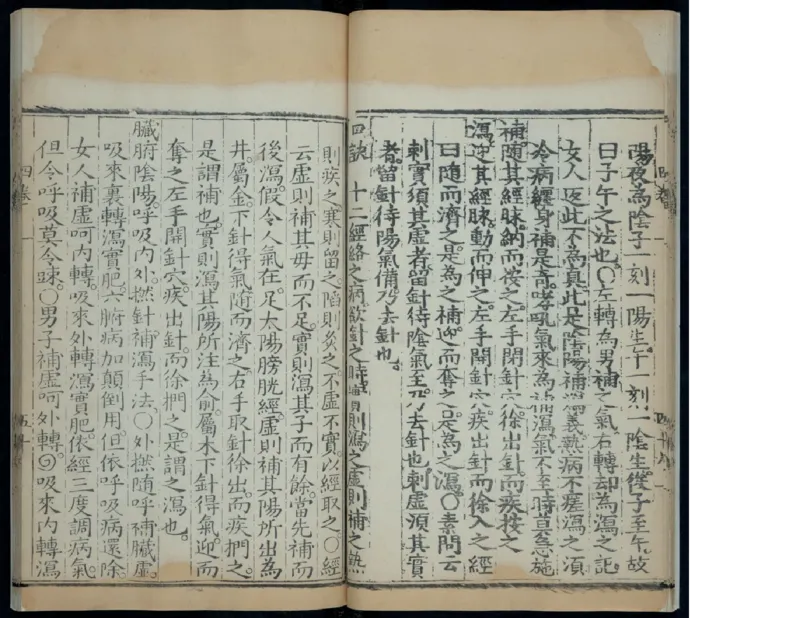 陽夜為陰子一刻一陽生午一刻一陰生從子至午故
曰子午之法也○左轉為男補之氣右轉却為瀉之記
女人返此不為真此是陰陽補瀉義熱病不瘥瀉之須
冷病纏身補是奇哮吼氣來為補瀉氣不至時莫急施
補隨其經脉納而按之左手閉針穴徐出針而疾按之
瀉迎其經脉動而伸之左手開針穴疾出針而徐入之經
曰隨而濟之是為之補迎而奪之是為之瀉○素問云
刺實須其虛者留針待陰氣至乃去針也刺虛須其實
者留針待陽氣備乃去針也
口訣 十二經絡之病欲針之時實則瀉之虛則補之熱
則疾之寒則留之陷則灸之不虛不實以經取之○經
云虛則補其母而不足實則瀉其子而有餘當先補而
後瀉假令人氣在足太陽膀胱經虛則補其陽所出為
井屬金下針得氣隨而濟之右手取針徐出而疾捫之
是謂補也實則瀉其陽所注為俞屬木下針得氣迎而
奪之左手開針穴疾出針而徐捫之是謂之瀉也
臟腑陰陽呼吸內外撚針補瀉手法○外撚隨呼補臟虛
吸來裏轉瀉實肥六腑病加顛倒用但依呼吸病還除
女人補虛呵內轉吸來外轉瀉實肥依經三度調病氣
但令呼吸莫令疎○男子補虛呵外轉○吸來內轉瀉
四卷